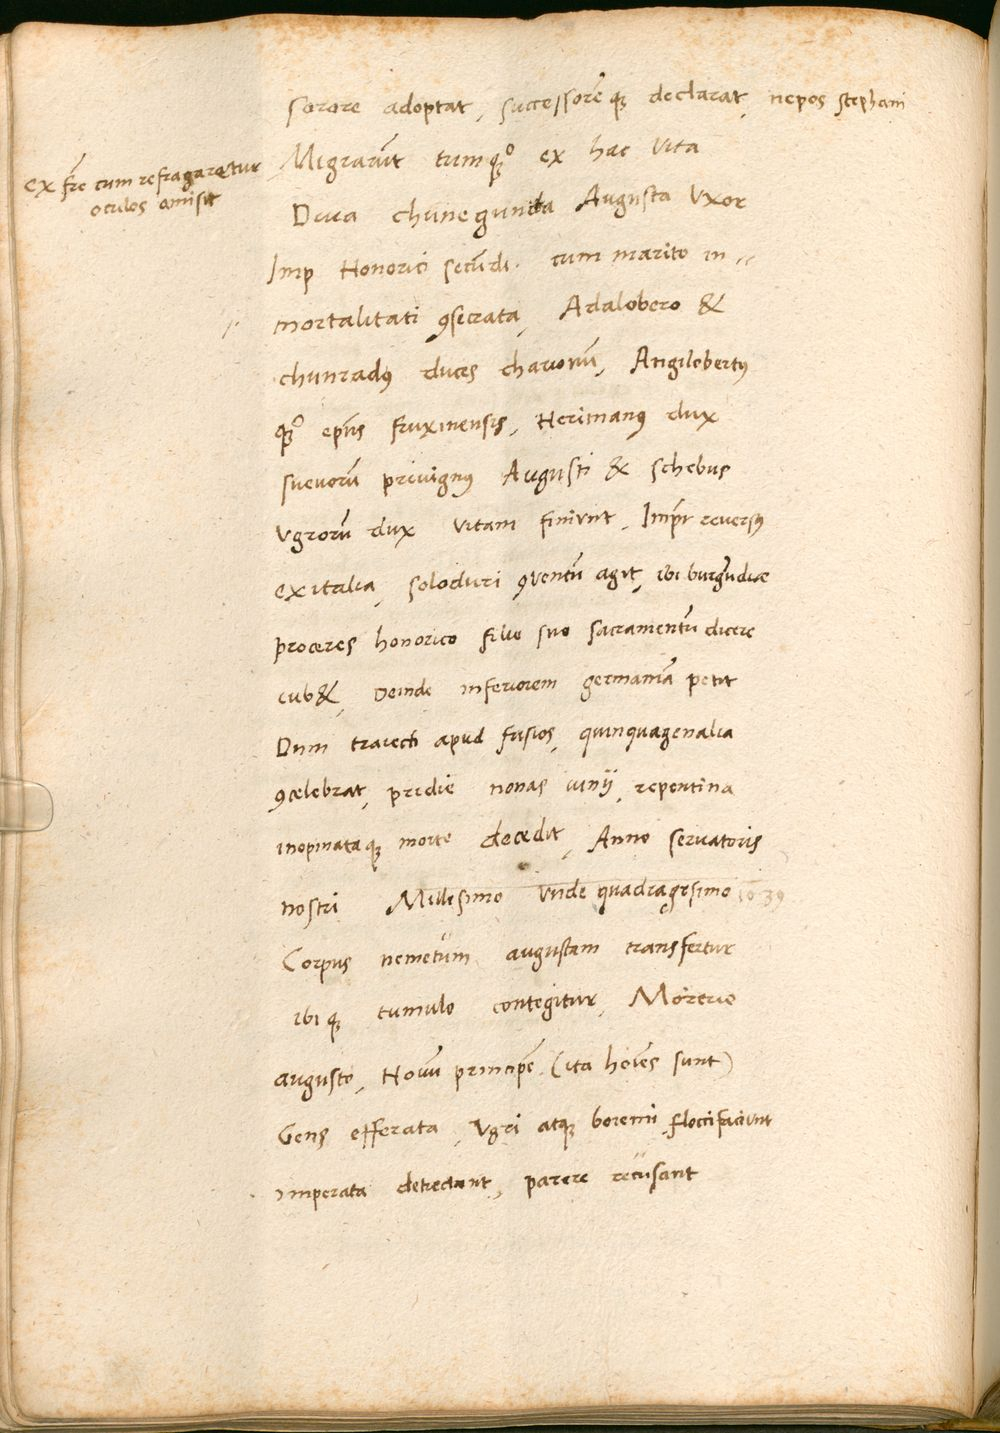 sorore adoptat, successorē q; declarat, nepos stephani
ex fr̄e cum refragaretur
oculos amisit
Migrarūt tum q;° ex hac vita
Diua chunegunda Augusta Vxor
Imp Honorici secūdi. cum marito in„
mortalitati ꝯsecrata, Adalobero &
chunradꝰ duces charionū, Angilobertꝰ
q;° ep̄us fruxinensis, Herimanꝰ dux
sueuorū priuignꝰ Augusti & schebus
vgrorū dux vitam finiunt, Imp̄r reuersꝰ
ex italia, soloduri ꝯuentū agit, ibi burgūdiæ
proceres honorico filio suo sacramentū dicere
iub&, Deinde inferiorem germaniā petit
Dum traiecti apud frisios, quinquagenalia
ꝯcelebrat, pridie nonas iunij, repentina
inopinataq; morte decedit, Anno seruatoris
nostri Millesimo vnde quadragesimo 1039
Corpus nemetum augustam transfertur
ibi q; tumulo contegitur, Mortuo
augusto, Nouū principē (ita hoīes sunt)
Gens efferata, Vgri atq; boiemi floccifaciunt
imperata detrectant, parere recusant